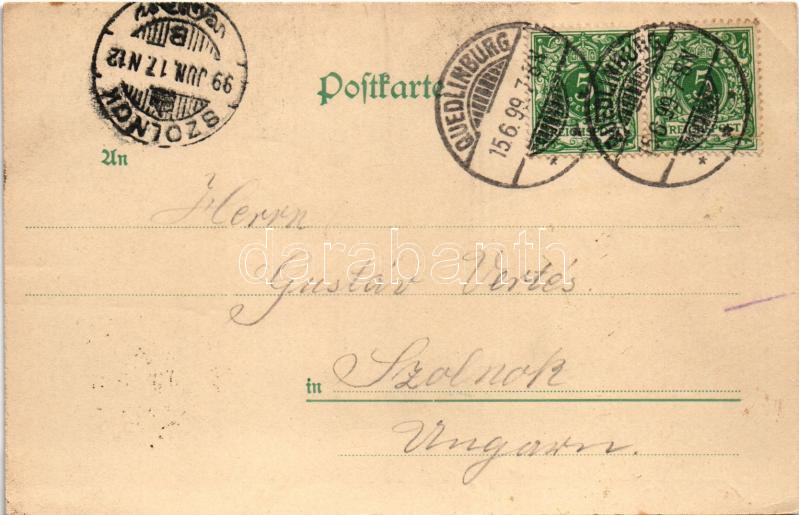 SZOLNOK
99 JUN. 17. N12
B
Postkarte
QUEDLINBURG
15.6.99. 7-8N
QUEDLINBURG
7-8N
5
5
An
Herrn
Gustáv Vertés.
darabanth
in Szolnok
Ungarn.